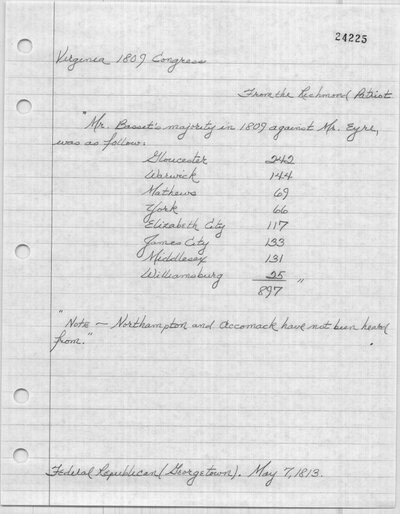 24225
Virginia 1809 Congress
From the Richmond Patriot
"Mr. Basset's majority in 1809 against Mr. Eyre,
was as follow:
Gloucester 242
Warwick 144
Mathews 69
York 66
Elizabeth City 117
James City 133
Middlesex 131
Williamsburg 25
897 "
"Note — Northampton and Accomack have not been heard
from."
Federal Republican (Georgetown). May 7, 1813.